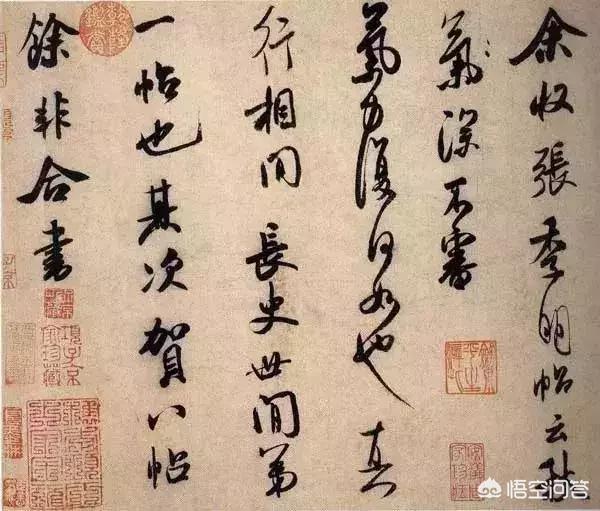 余收張季明帖云秋
氣深不審
氣力復何如也真
行相間長史世間第
一帖也其次賀八帖
餘非合書
項子京家珍藏
悟空问答